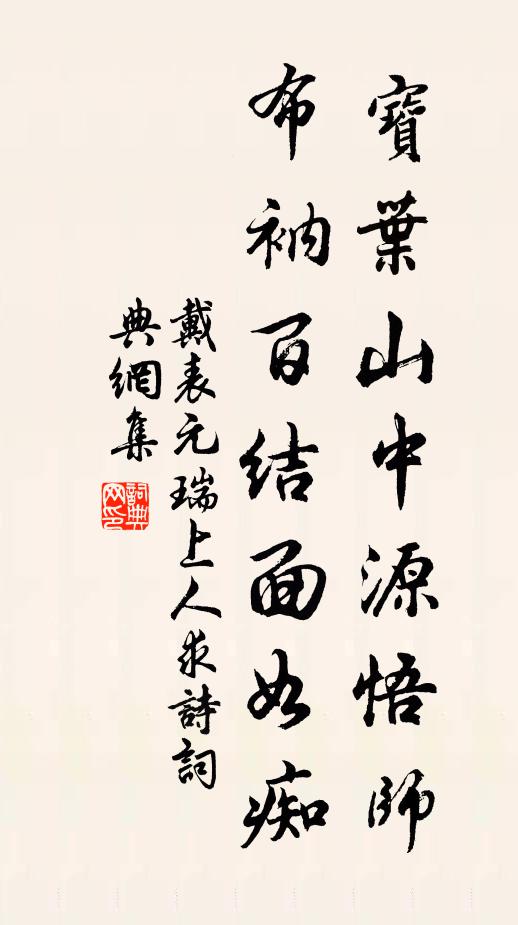 寶葉山中源悟師
布衲百結面如痴
戴表元瑞上人求詩詞
典網集
詞典
网印